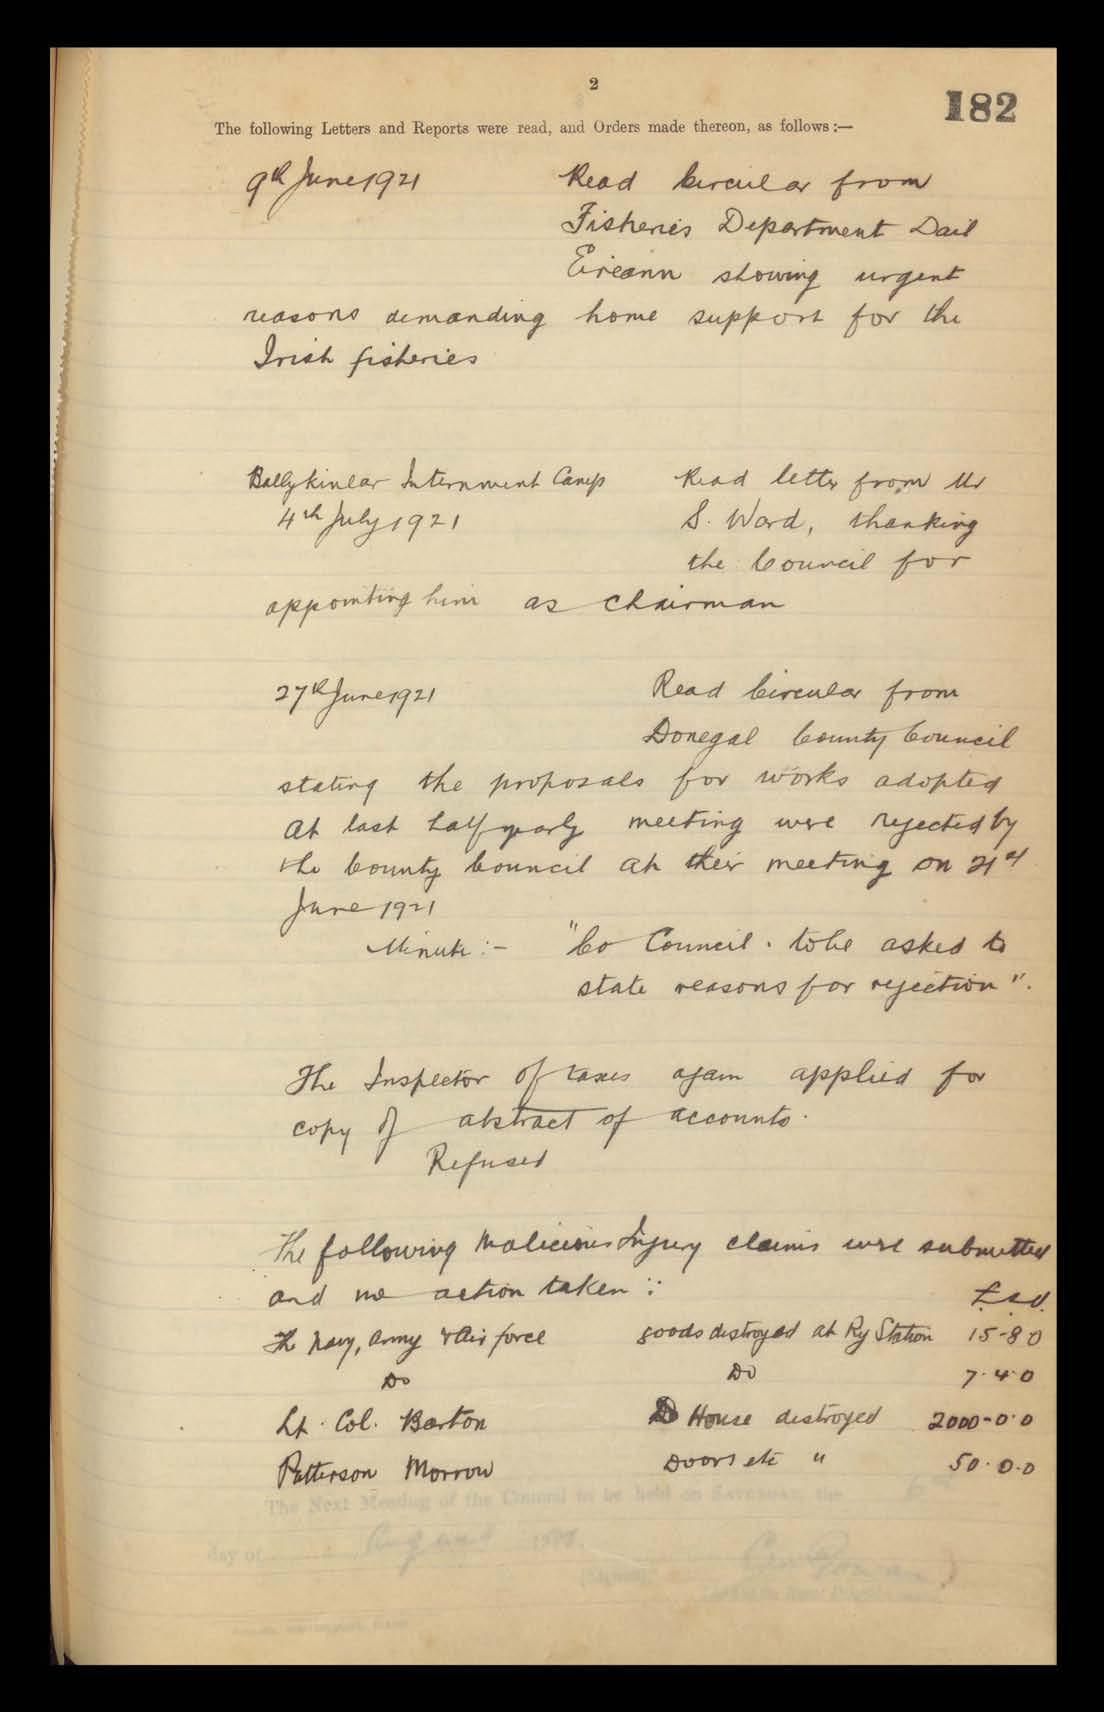 2
182
The following Letters and Reports were read, and Orders made thereon, as follows :—
9th June 1921 Read Circular from
Fisheries Department Dail
Eireann showing urgent
reasons demanding home support for the
Irish fisheries
Ballykinlar Internment Camp Read letter from Mr
4th July 1921 S. Ward, thanking
the Council for
appointing him as chairman
27th June 1921 Read Circular from
Donegal County Council
stating the proposals for works adopted
at last half yearly meeting were rejected by
the County Council at their meeting on 21st
June 1921
Minute :- "Co Council . to be asked to
state reasons for rejection".
The Inspector of taxes again applied for
copy of abstract of accounts.
Refused
The following Malicious Injury claims were submitted
and no action taken :
£ s d.
The Navy, Army & Air force goods destroyed at Ry Station 15-8 0
Do Do 7.4.0
Lt. Col. Barton House destroyed 2000-0.0
Patterson Morrow Doors etc " 50.0.0
The Next Meeting of the Council to be held on SATURDAY, the 6th
day of August